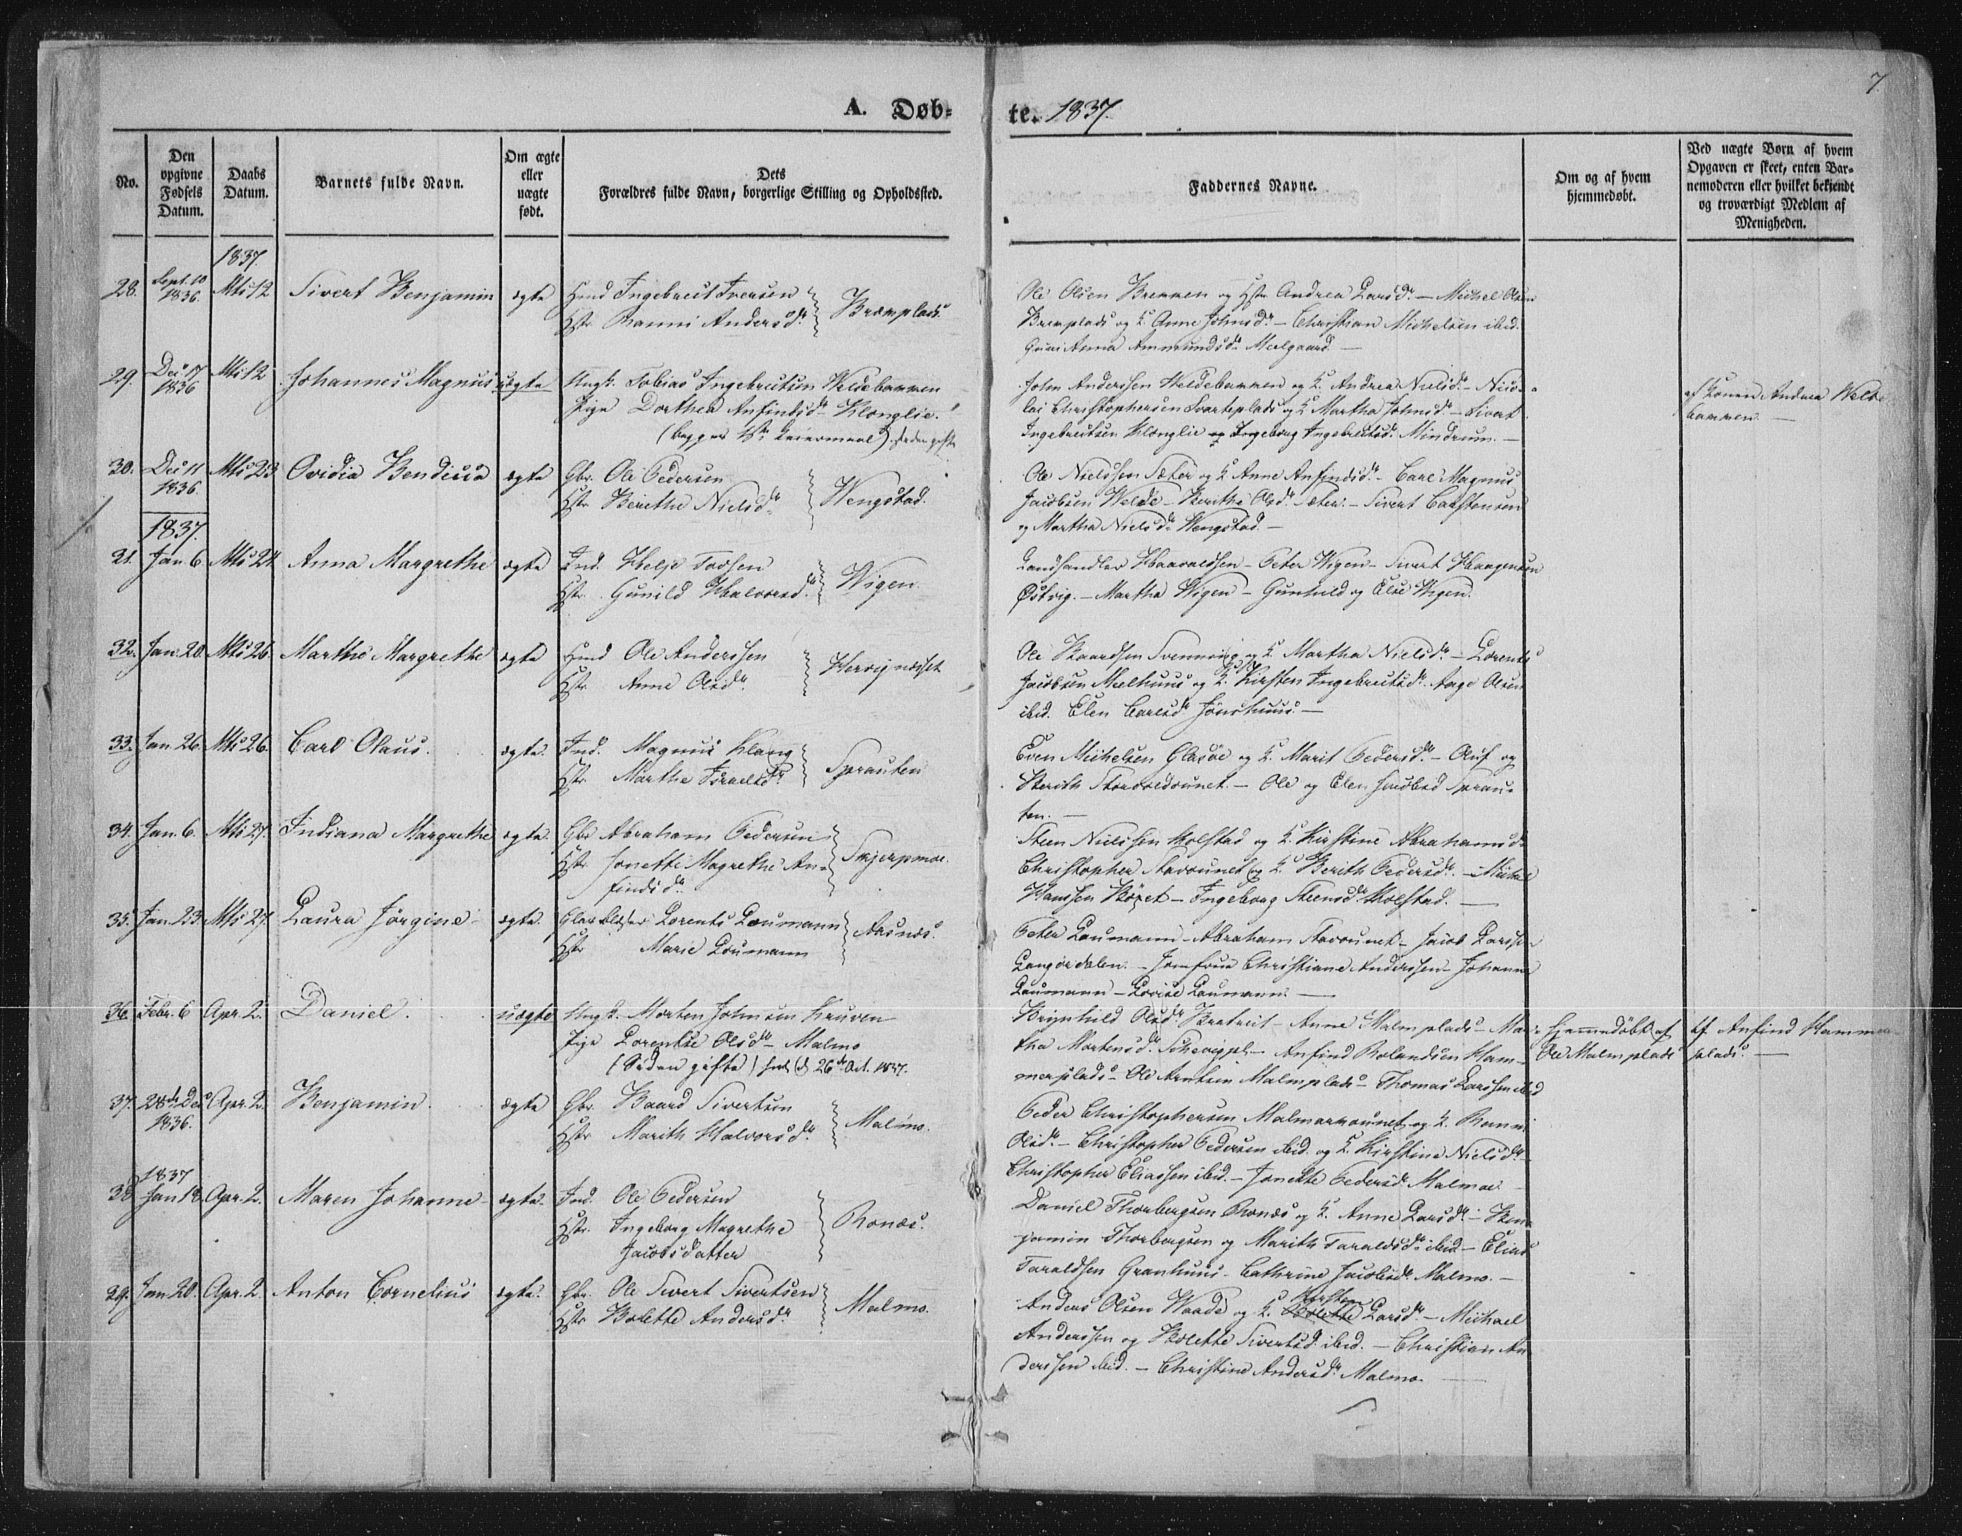 7
A. Døb-
te. 1837.
No.
Den opgivne Fødsels Datum.
Daabs Datum.
Barnets fulde Navn.
Om ægte eller uægte født.
Dets Forældres fulde Navn, borgerlige Stilling og Opholdssted.
Faddernes Navne.
Om og af hvem hjemmedøbt.
Ved uægte Børn af hvem Opgaven er skeet, enten Barnemoderen eller hvilket bekjendt og troværdigt Medlem af Menigheden.
1837.
28. Sept. 10 1836. Mts 12 Sivert Benjamin ægte Hmd Ingebrect Iversen
Hstr Ranni Andersdr. Bremplads.
Ole Olsen Bremmen og Hstr Andrea Larsdr. – Michel Olsen
Bremplads og K. Anne Johnsdr. – Christian Michelsen ibid.
Anna Ammundsdr. Melgaard. –
29. Dec 17 1836 Mts 12 Johannes Magnus uægte Ungk. Tobias Ingebrectsen Weldebammen
Pige Dorthea Anfindsdr. Klonglie.
(begges 1ste Leiermaal) siden gifte
John Anderssen Weldebammen og K. Andrea Nielsdr. – Nico-
lai Christophersen Svarteplads og K. Martha Johnsdr. – Sivert
Ingebrectsen Klonglie og Ingeborg Ingebrectsdr. Mindrum. –
af Konen Andrea Welde
bammen. –
30. Dec 11 1836. Mts 23 Ovidia Bendicta ægte Gbr. Ole Pedersen
Hstr Berethe Nielsdr. Wengstad.
Ole Nielssen Sæter og K. Anne Anfindsdr. – Carl Magnus
Jacobsen Welde – Berithe Olsdr. Sæter. – Sivert Carstensen
og Martha Nielsdr. Wengstad. –
1837.
21. Jan. 6 Mts 24 Anna Margrethe ægte Ind. Helje Tovsen
Hstr. Gunild Halvorsdr. Wigen.
Landhandler Haavaldsen – Peter Wigen – Sivert Haagensen
Østvig. – Martha Wigen – Gunhild og Else Wigen.
32. Jan. 20. Mts 26 Marthe Margrethe ægte Hmd Ole Anderssen
Hstr. Anne Olsdr.
Ole Baardsen Svenning og K. Martha Nielsdr. – Lorents
Jacobsen Melhuus og K. Kirsten Ingebrectsdr. Aage Olsen
ibid. Elen Carlsdr. Jønshuus. –
33. Jan. 26. Mts 26. Carl Olaus. ægte. Ind. Magnus Klang
Hstr. Marthe Israelsdr. Sprauten
Even Michelsen Glasøe og K. Marit Pedersdr. – Oluf og
Berith – Ole og Elen Jacobsd Sprau-
ten. –
34. Jan. 6. Mts 27. Indiana Margrethe ægte. Gbr Abraham Pedersen
Hstr Jonette Magrethe An-
findsdr. Skjerpmoe.
Steen Nielssen Holstad og K. Kirstine Abrahamsdr
Christopher Aavounet og K. Berith Pedersdr. – Michel
Hanssen – Ingeborg Steensdr. Holstad. –
35. Jan. 23. Mts 27. Laura Jørgine – ægte. Lorents Laumann
Hstr Marie Laumann Aasnæs.
Peter Laumann – Abraham Aavounet – Jacob Larssen
Langørdalen. – Jomfrue Christiane Anderssen – Johanna
Laumann – Lovise Laumann. –
36. Febr. 6 Apr. 2. Daniel. uægte Ungk. Morten Johnsen Kruven
Pige Lorentse Olsdr. Malmo
(Siden gifte) d 26de Oct. 1837.
Brynhild Olsdr. Bratreit – Anne Malmplads – Mar-
tha Mortensdr. – Anfind Rolandsen Ham-
merplads – Ole Arntsen Malmplads – Thomas Larssen ibid
Hjemmedøbt af
Ole Malmplads
af Anfind Hammer-
plads. –
37. 28de Dec 1836. Apr. 2. Benjamin. ægte Gbr. Baard Sivertsen
Hstr Marith Halvorsdr. Malmo.
Peder Christophersen Malmaraunet og K. Ranni
Olsdr. – Christopher Pedersen ibid. og K. Kirstine Nielsdr. –
Christopher Eliassen ibid. – Jonette Pedersdr. Malmoe.
1837
38 Jan 18. Apr. 2. Maren Johanne – ægte. Ind. Ole Pedersen
Hstr. Ingeborg Magrethe
Jacobsdatter Ronæs.
Daniel Thorbergsen Ronæs og K. Anne Larsdr. – Ben-
jamin Thorbergsen og Marith Taraldsdr. ibid. – Elias
Taraldsen Granhuus. Cathrine Jacobsdr. Malmo. –
29. Jan. 20. Apr. 2. Anton Cornelius ægte. Gbr. Ole Sivert Sivertsen
Hstr Bolette Andersdr. Malmo.
Anders Olsen Waade og K. Kirsten Larsdr. – Michael
Anderssen og Bolette Sivertsd ibid. – Christian An-
derssen ibid. – Christine Andersdr. Malmo. –